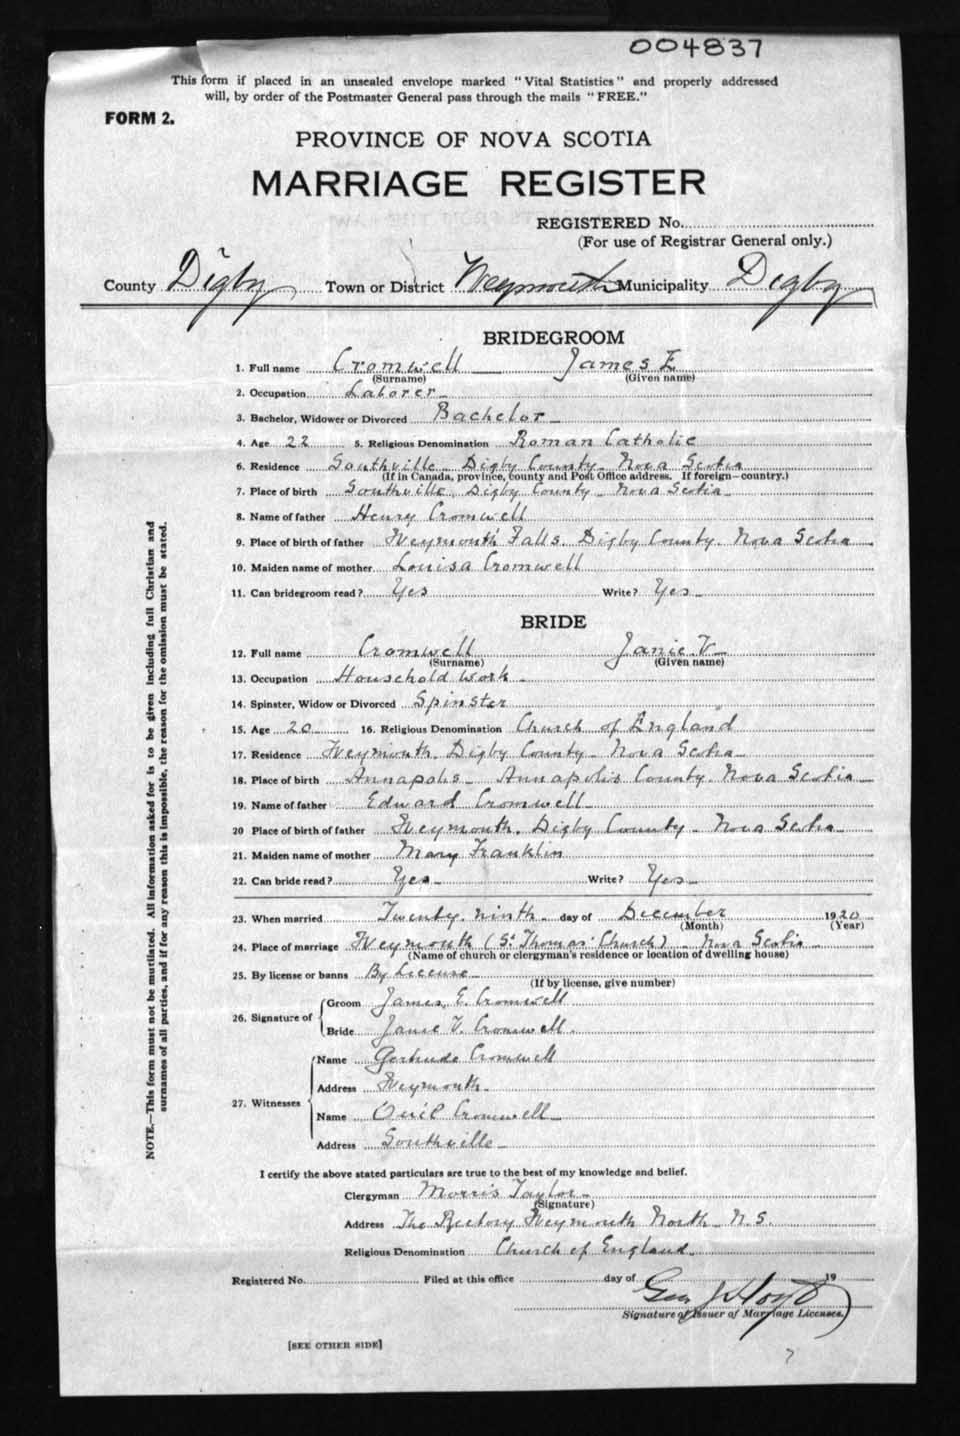 004837
This form if placed in an unsealed envelope marked "Vital Statistics" and properly addressed
will, by order of the Postmaster General pass through the mails "FREE."
FORM 2.
PROVINCE OF NOVA SCOTIA
MARRIAGE REGISTER
REGISTERED No.
(For use of Registrar General only.)
County Digby Town or District Weymouth Municipality Digby
BRIDEGROOM
1. Full name Cromwell James E
(Surname) (Given name)
2. Occupation Laborer
3. Bachelor, Widower or Divorced Bachelor
4. Age 22 5. Religious Denomination Roman Catholic
6. Residence Southville Digby County Nova Scotia
(If in Canada, province, county and Post Office address. If foreign—country.)
7. Place of birth Southville, Digby County Nova Scotia
8. Name of father Henry Cromwell
9. Place of birth of father Weymouth Falls. Digby County. Nova Scotia
10. Maiden name of mother Louisa Cromwell
11. Can bridegroom read? Yes Write? Yes
BRIDE
12. Full name Cromwell Janie V
(Surname) (Given name)
13. Occupation Household Work
14. Spinster, Widow or Divorced Spinster
15. Age 20 16. Religious Denomination Church of England
17. Residence Weymouth, Digby County Nova Scotia
18. Place of birth Annapolis Annapolis County. Nova Scotia
19. Name of father Edward Cromwell
20 Place of birth of father Weymouth. Digby County Nova Scotia
21. Maiden name of mother Mary Franklin
22. Can bride read? Yes Write? Yes
23. When married Twenty ninth day of December 1920
(Month) (Year)
24. Place of marriage Weymouth (St Thomas' Church) Nova Scotia
(Name of church or clergyman's residence or location of dwelling house)
25. By license or banns By License
(If by license, give number)
26. Signature of Groom James. E. Cromwell
Bride Janie V. Cromwell.
27. Witnesses Name Gertrude Cromwell
Address Weymouth
Name Cromwell
Address Southville
I certify the above stated particulars are true to the best of my knowledge and belief.
Clergyman Morris Taylor
(Signature)
Address The Rectory Weymouth North N.S.
Religious Denomination Church of England
Registered No. Filed at this office day of 19
Geo
Signature of Issuer of Marriage Licenses.
[SEE OTHER SIDE]
?
NOTE.—This form must not be mutilated. All information asked for is to be given including full Christian and
surnames of all parties, and if for any reason this is impossible, the reason for the omission must be stated.